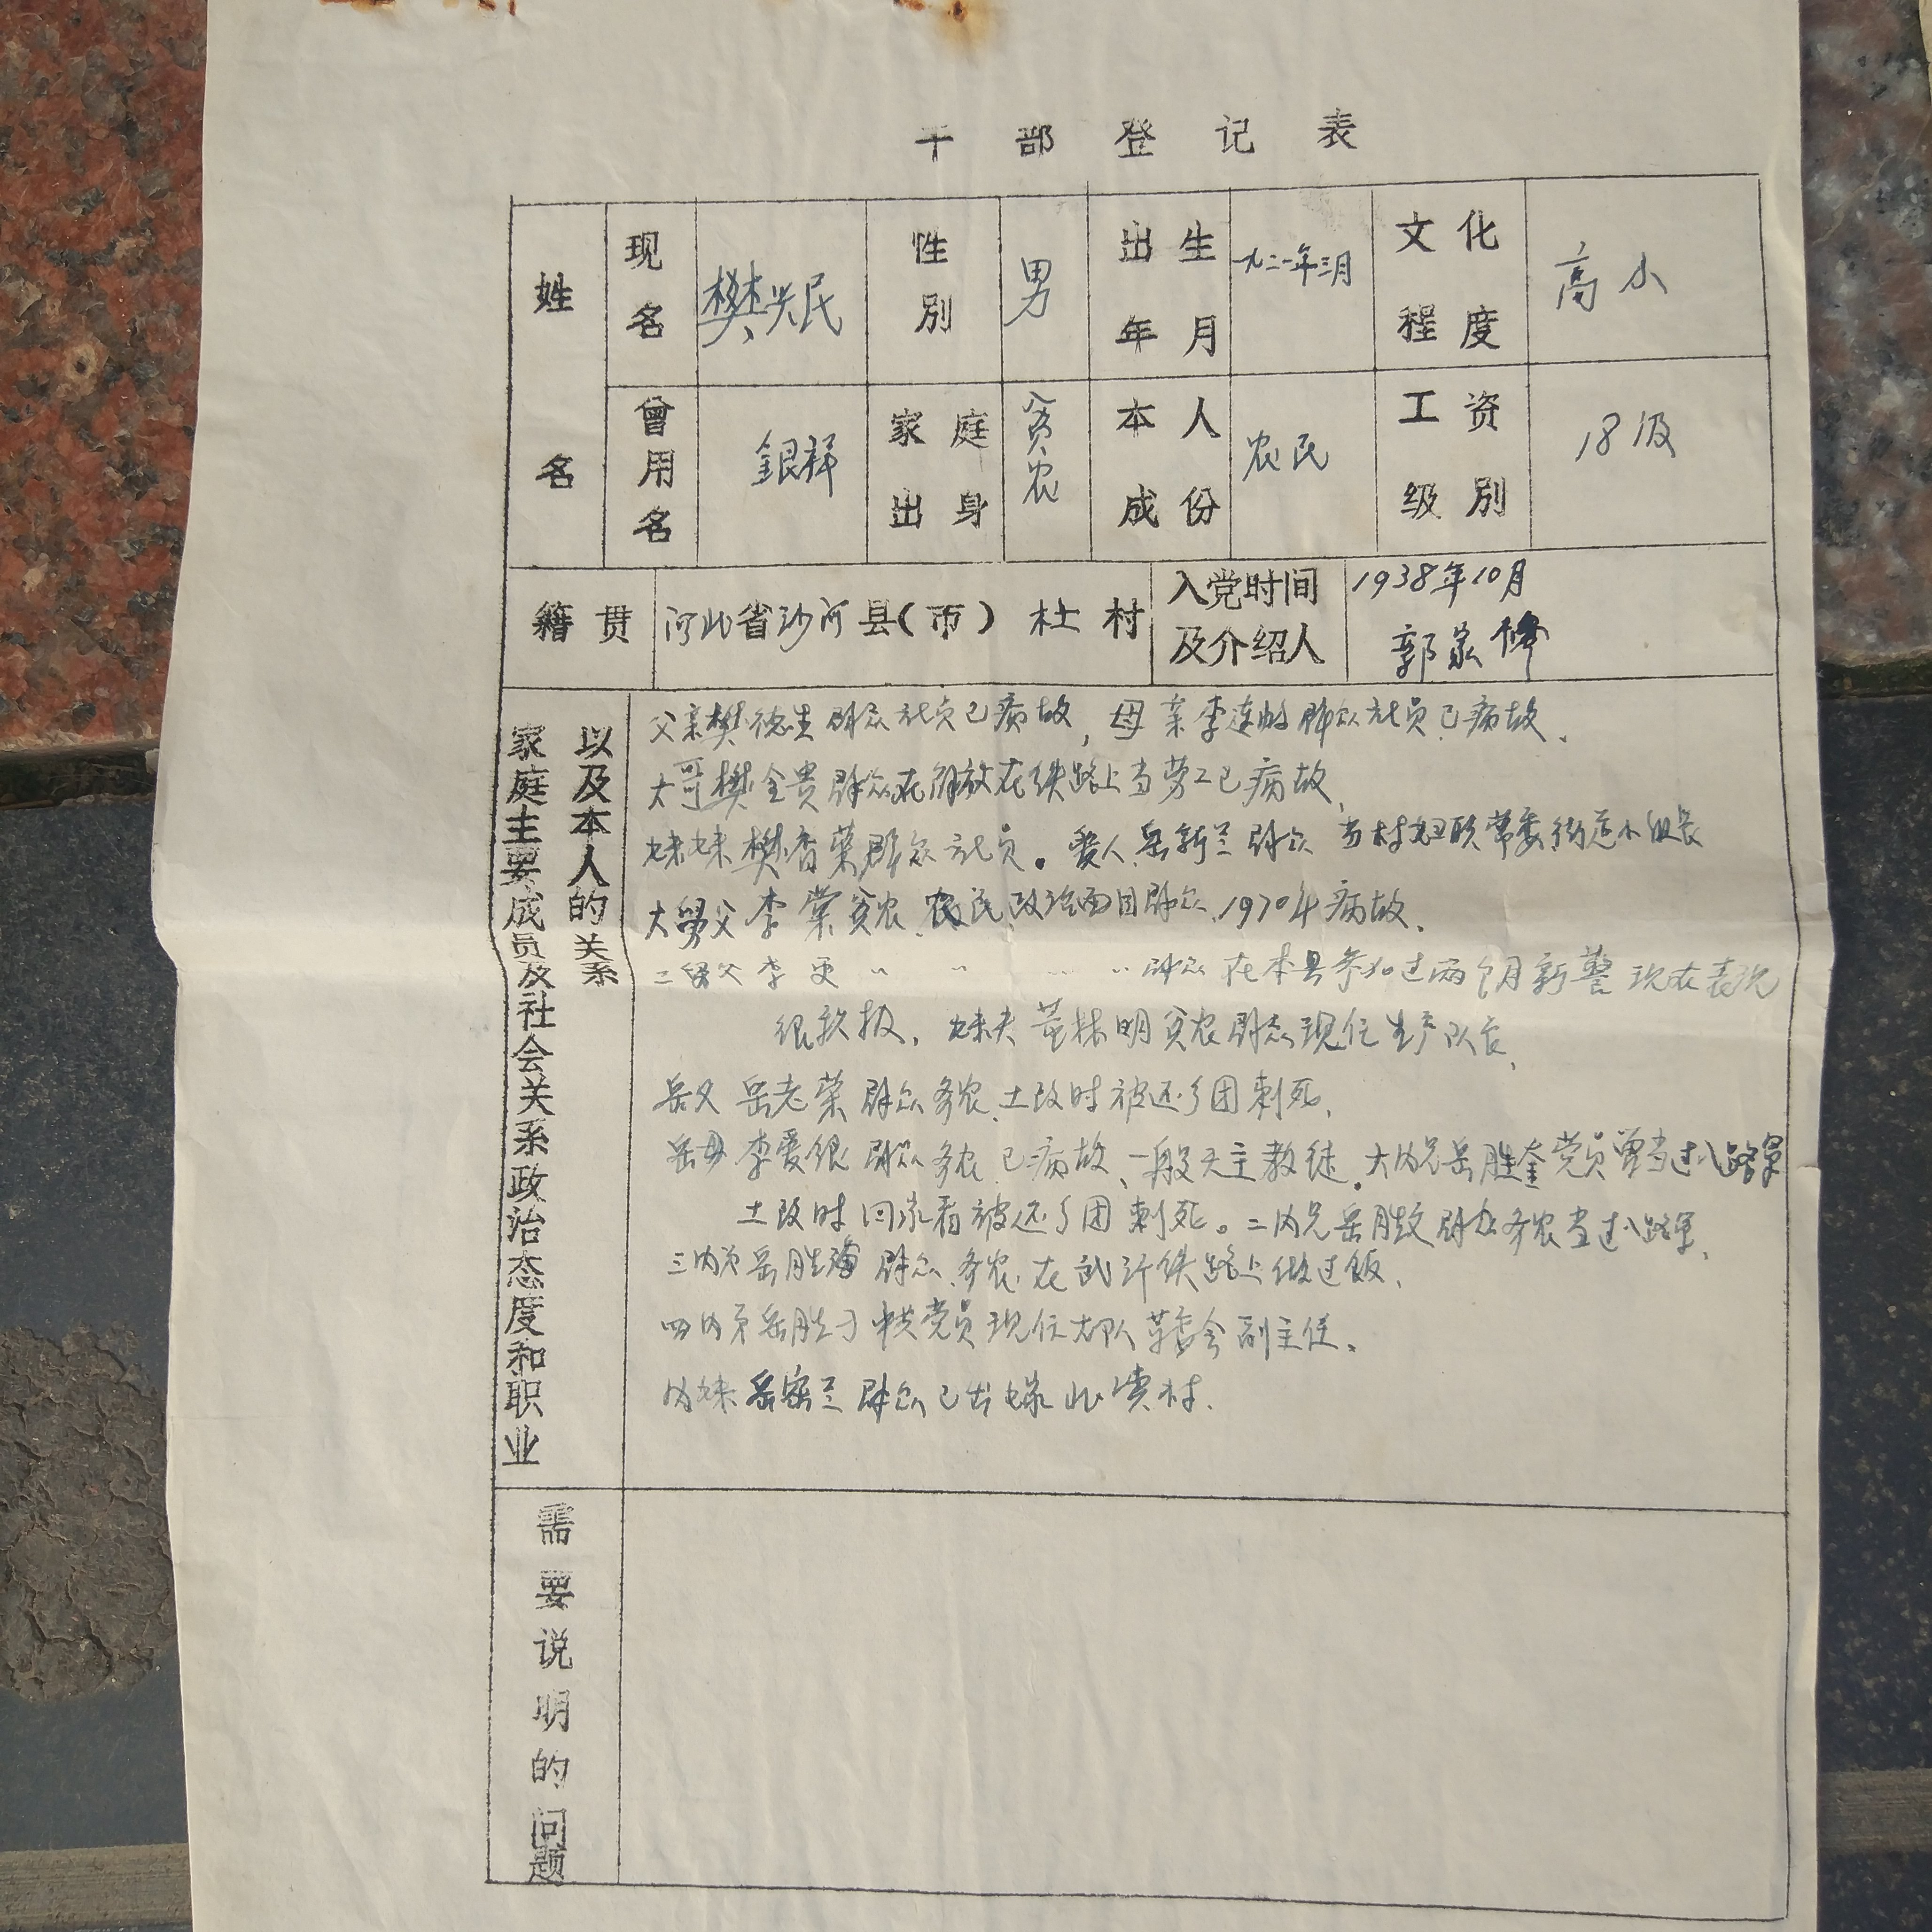 干部登记表
姓名 现名 樊兴民 性别 男 出生年月 一九二一年三月 文化程度 高小
曾用名 銀祥 家庭出身 贫农 本人成份 农民 工资级别 18级
籍贯 河北省沙河县(市) 杜村 入党时间及介绍人 1938年10月
郭家修
家庭主要成员及社会关系政治态度和职业
以及本人的关系
父亲樊德生群众社员已病故,母亲李连的群众社员已病故、
大哥樊全贵群众在解放在铁路上当劳工已病故、
妹妹樊香荣群众社员。爱人岳新兰群众 当村妇联常委街道小组长
大舅父李棠贫农、农民政治面目群众、1970年病故、
二舅父李更 〃 〃 〃 〃群众在本县参加过两个月新警现在表现
很积极、妹夫 林明贫农群众现任生产队长、
岳父 岳老荣 群众 务农、土改时被还乡团刺死、
岳母 李爱银 群众 务农 已病故、一般天主教徒。大内兄岳胜奎党员曾当过八路军
土改时回家看被还乡团刺死。二内兄岳胜 群众务农当过八路军、
三内兄岳胜海 群众、务农、在武 铁路上做过饭、
四内弟岳胜 中共党员现任大队革委会副主任。
内妹岳密兰 群众已出嫁北 村、
需要说明的问题